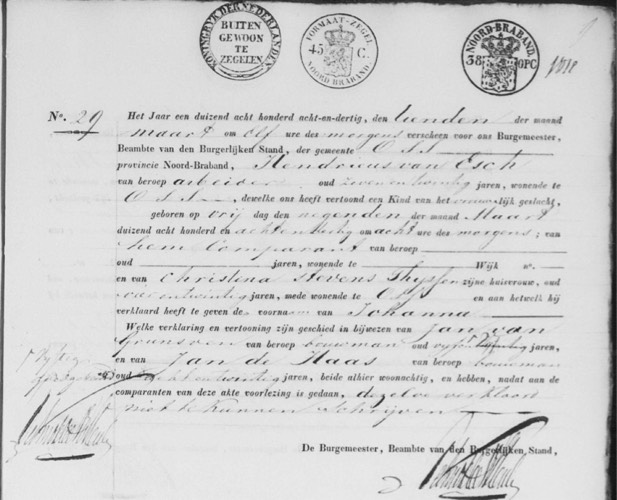 KONINGRYK DER NEDERLANDEN
BUITEN
GEWOON
TE
ZEGELEN
FORMAAT-ZEGEL
45 C.
NOORD BRABAND
NOORD-BRABAND.
38 OPC
No. 29 Het Jaar een duizend acht honderd acht-en-dertig, den tienden der maand
maart om elf ure des morgens verscheen voor ons Burgemeester,
Beambte van den Burgerlijken Stand, der gemeente Oss
provincie Noord-Braband, Hendricus van Esch
van beroep arbeider oud zevenentwintig jaren, wonende te
Oss, dewelke ons heeft vertoond een Kind van het vrouwelijk geslacht,
geboren op vrij dag den negenden der maand Maart
duizend acht honderd en achtendertig om acht ure des morgens; van
hem Comparant van beroep
oud jaren, wonende te Wijk no.
en van Christina Stevens Thyssen zijne huisvrouw, oud
vierentwintig jaren, mede wonende te Oss en aan hetwelk hij
verklaard heeft te geven de voornaam van Johanna
Welke verklaring en vertooning zijn geschied in bijwezen van Jan van
Grunsven van beroep bouwman oud vyf jaren,
en van Jan de Haas van beroep bouwman
oud achtentwintig jaren, beide alhier woonachtig, en hebben, nadat aan de
comparanten van deze akte voorlezing is gedaan, dezelve verklaart
niet te kunnen schrijven
De Burgemeester, Beambte van den Burgerlijken Stand,